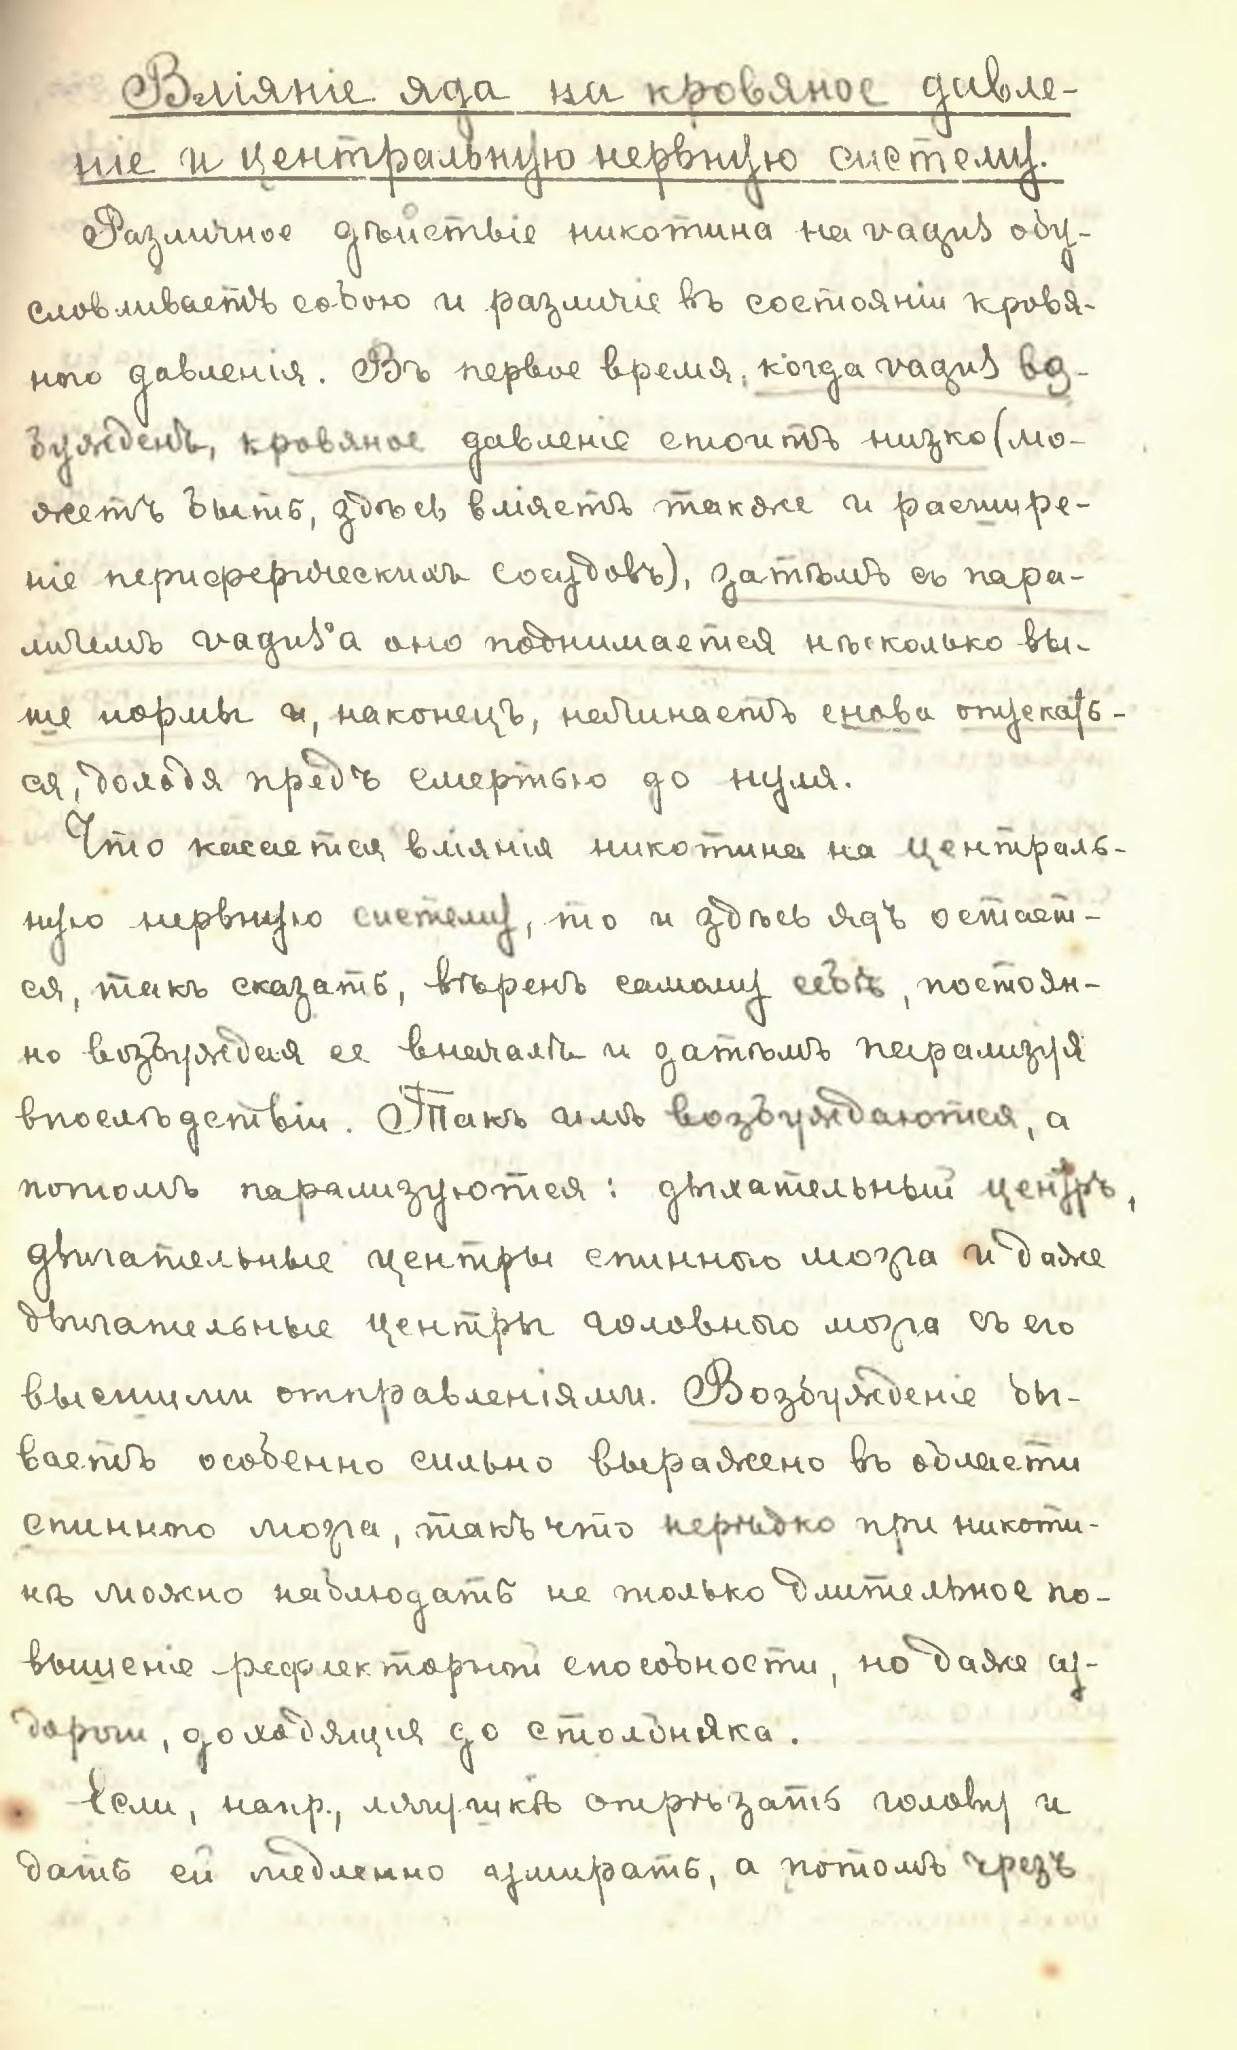 Вліяніе яда на кровяное давле-
ніе и центральную нервную систему.
Различное дѣйствіе никотина на vagus обу-
словливаетъ собою и различіе въ состояніи кровя-
ного давленія. Въ первое время, когда vagus воз-
бужденъ, кровяное давленіе стоитъ низко (мо-
жетъ быть, здѣсь вліяетъ также и расшире-
ніе периферическихъ сосудовъ), затѣмъ съ пара-
личемъ vagus'а оно поднимается нѣсколько вы-
ше нормы и, наконецъ, начинаетъ снова опускать-
ся, доходя предъ смертью до нуля.
Что касается вліянія никотина на централь-
ную нервную систему, то и здѣсь ядъ остает-
ся, такъ сказать, вѣренъ самому себѣ, постоян-
но возбуждая ее вначалѣ и затѣмъ парализуя
впослѣдствіи. Такъ имъ возбуждаются, а
потомъ парализуются: дыхательный центръ,
двигательные центры спинного мозга и даже
двигательные центры головного мозга съ его
высшими отправленіями. Возбужденіе бы-
ваетъ особенно сильно выражено въ области
спинного мозга, такъ что нерѣдко при никоти-
нѣ можно наблюдать не только длительное по-
вышеніе рефлекторной способности, но даже су-
дороги, доходящія до столбняка.
Если, напр., лягушкѣ отрѣзать голову и
дать ей медленно умирать, а потомъ чрезъ